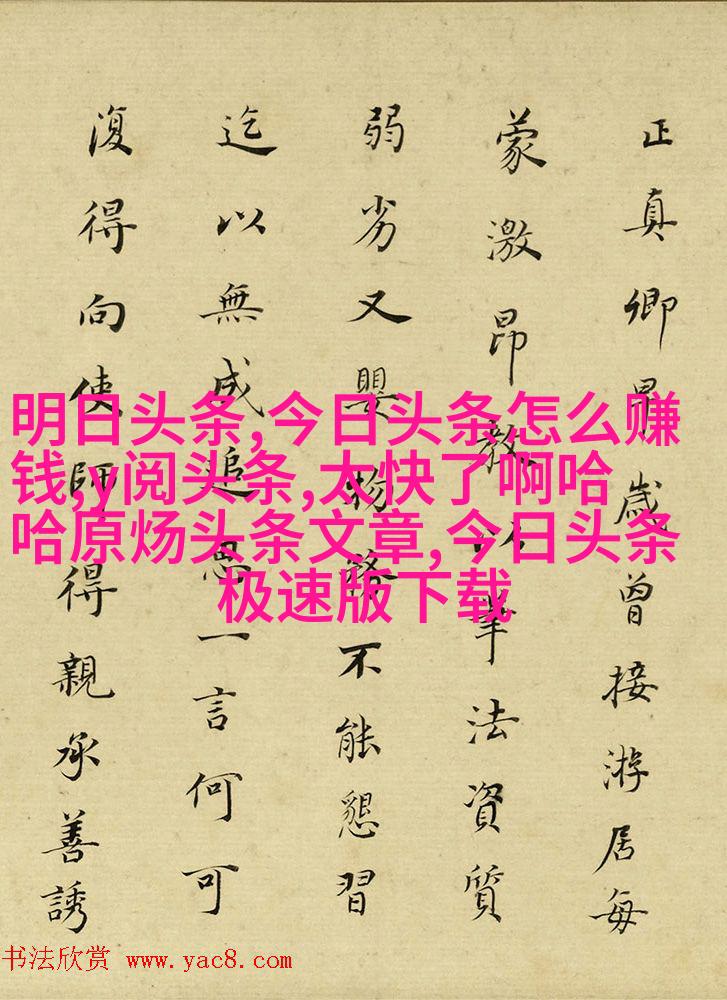 正真卿早歲曾接游居每
蒙激昂教以筆法資質
弱劣又嬰物務不能懇習
迄以無成追思一言何可
復得向使師得親承善誘
明日头条,今日头条怎么赚
钱,y阅头条,太快了啊哈
哈原炀头条文章,今日头条
极速版下载
书法欣赏 www.yac8.com